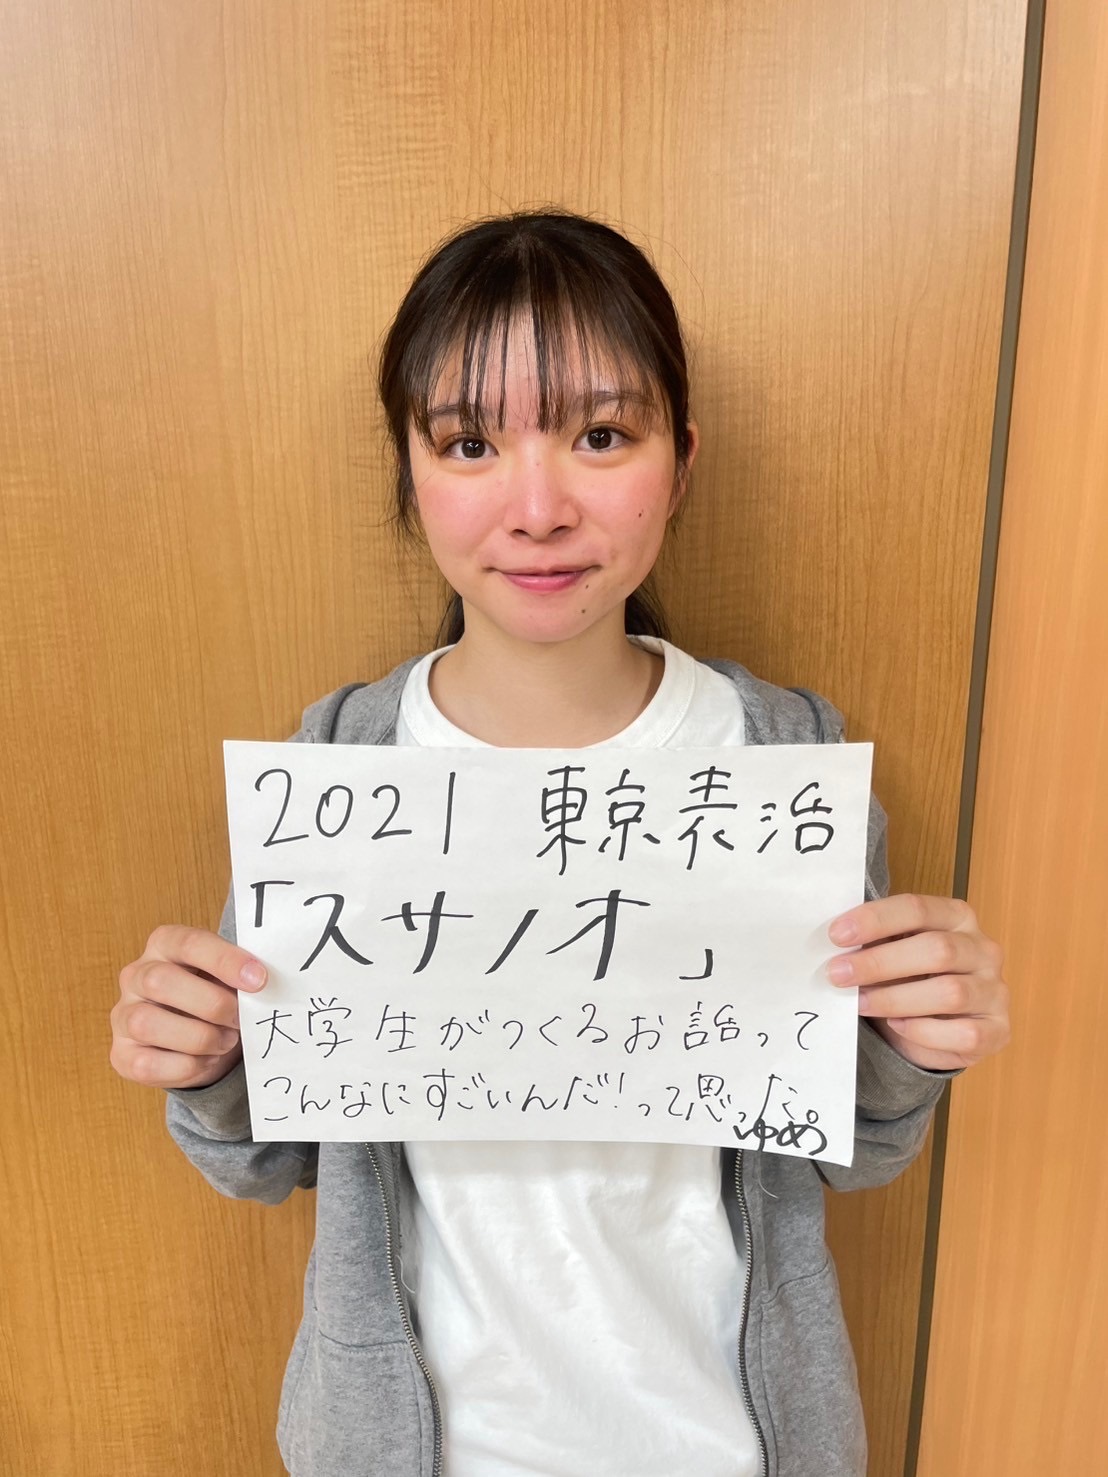 2021 東京表治
「スサノオ」
大学生がつくるお話って
こんなにすごいんだ!って思った
ゆめ